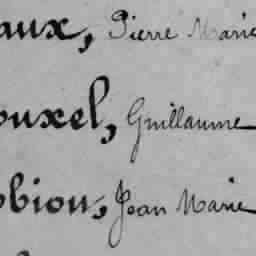 aux, Pierre Marie
ouxel, Guillaume
obion, Jean Marie